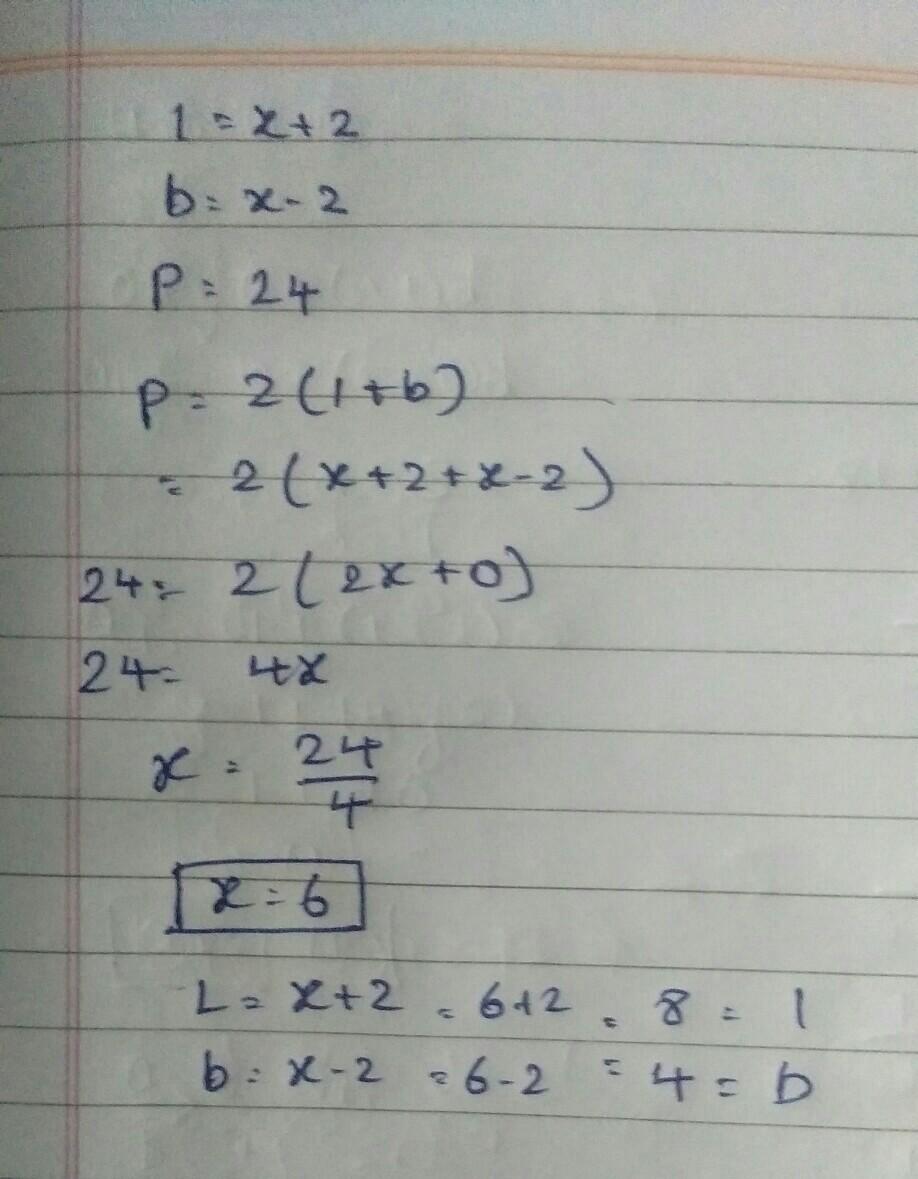 l = x + 2
b = x - 2
P = 24
P = 2 ( l + b )
= 2 ( x + 2 + x - 2 )
24 = 2 ( 2x + 0 )
24 = 4x
x = 24/4
x = 6
L = x + 2 = 6 + 2 = 8 = l
b = x - 2 = 6 - 2 = 4 = b